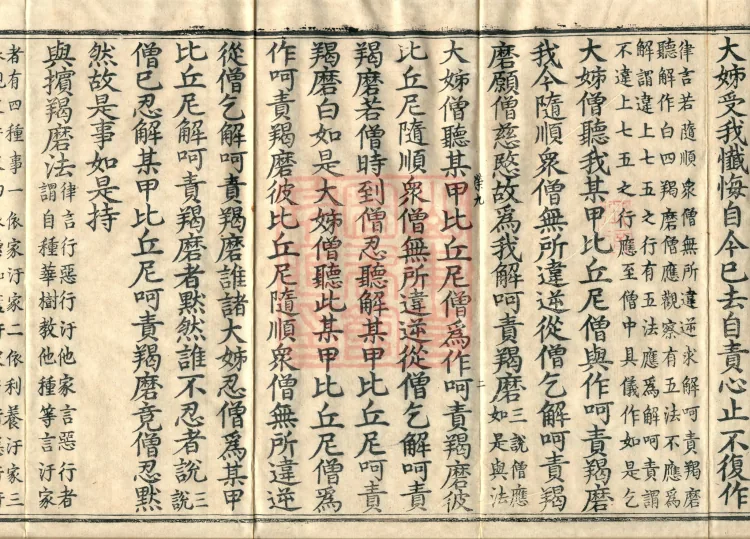 大姊受我懺悔自今已去自責心止不復作
律言若隨順衆僧無所違逆求解呵責羯磨
聽解作白四羯磨僧應觀察有五法不應爲
解謂違上七五之行有五法應爲解呵責謂
不違上七五之行應至僧中具儀作如是乞
大姊僧聽我某甲比丘尼僧與作呵責羯磨
我今隨順衆僧無所違逆從僧乞解呵責羯
磨願僧慈愍故爲我解呵責羯磨三說僧應
如是與法
大姊僧聽某甲比丘尼僧爲作呵責羯磨彼
比丘尼隨順衆僧無所違逆從僧乞解呵責
羯磨若僧時到僧忍聽解某甲比丘尼呵責
羯磨白如是大姊僧聽此某甲比丘尼僧爲
作呵責羯磨彼比丘尼隨順衆僧無所違逆
從僧乞解呵責羯磨誰諸大姊忍僧爲某甲
比丘尼解呵責羯磨者默然誰不忍者說三
說
僧已忍解某甲比丘尼呵責羯磨竟僧忍默
然故是事如是持
與擯羯磨法律言行惡行汙他家言惡行者
謂自種華樹教他種等言汙家
者有四種事一依家汙家二依利養汙家三